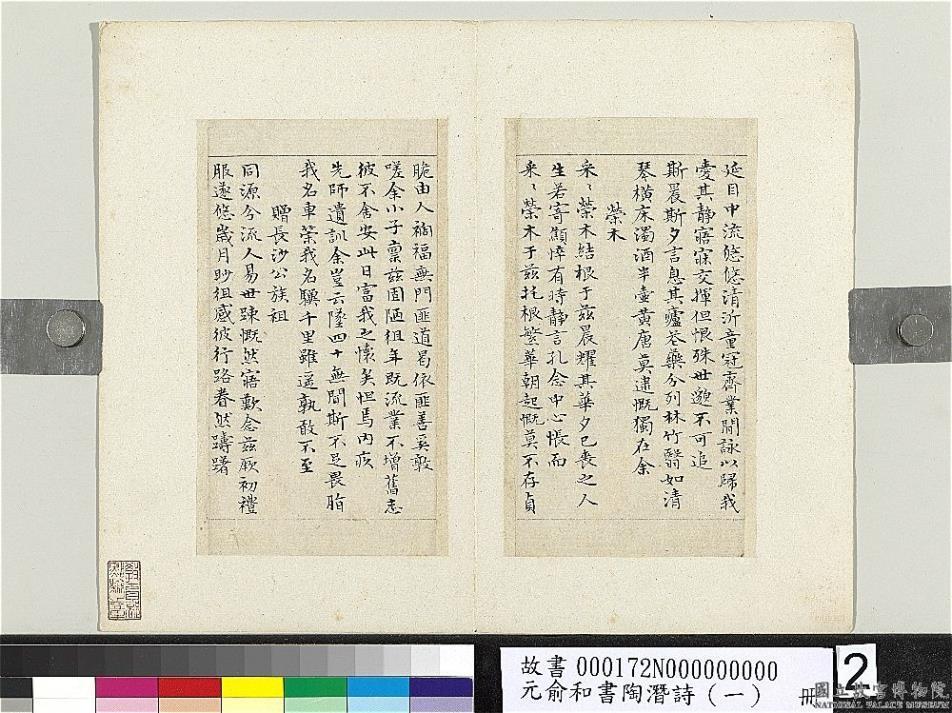 延目中流悠悠清沂童冠齊業閒詠以歸我
愛其靜寤寐交揮但恨殊世邈不可追
斯晨斯夕言息其廬花藥分列林竹翳如清
琴橫床濁酒半壺黃唐莫逮慨獨在余
榮木
采〻榮木結根于茲晨耀其華夕已喪之人
生若寄顦悴有時靜言孔念中心悵而
采〻榮木于茲托根繁華朝起慨莫不存貞
脆由人禍福無門匪道曷依匪善奚敦
嗟余小子稟茲固陋徂年既流業不增舊志
彼不舍安此日富我之懷矣怛焉內疚
先師遺訓余豈云墜四十無聞斯不足畏脂
我名車策我名驥千里雖遥孰敢不至
贈長沙公族祖
同源分流人易世踈慨然寤歎念茲厥初禮
服遂悠歲月眇徂感彼行路眷然躊躇
故書 000172N000000000
元俞和書陶潛詩(一) 冊
2
國立故宮博物院
NATIONAL PALACE MUSEUM